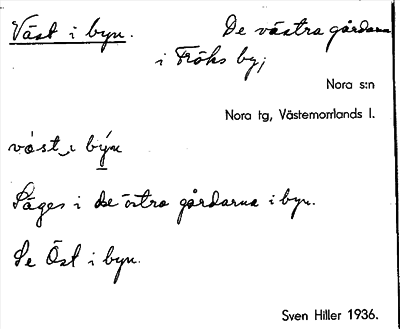 Väst i byn. De västra gårdarna
i Fröks by;
Nora s:n
Nora tg, Västernorrlands l.
väst i býn
Säges i de östra gårdarna i byn.
Se Öst i byn.
Sven Hiller 1936.